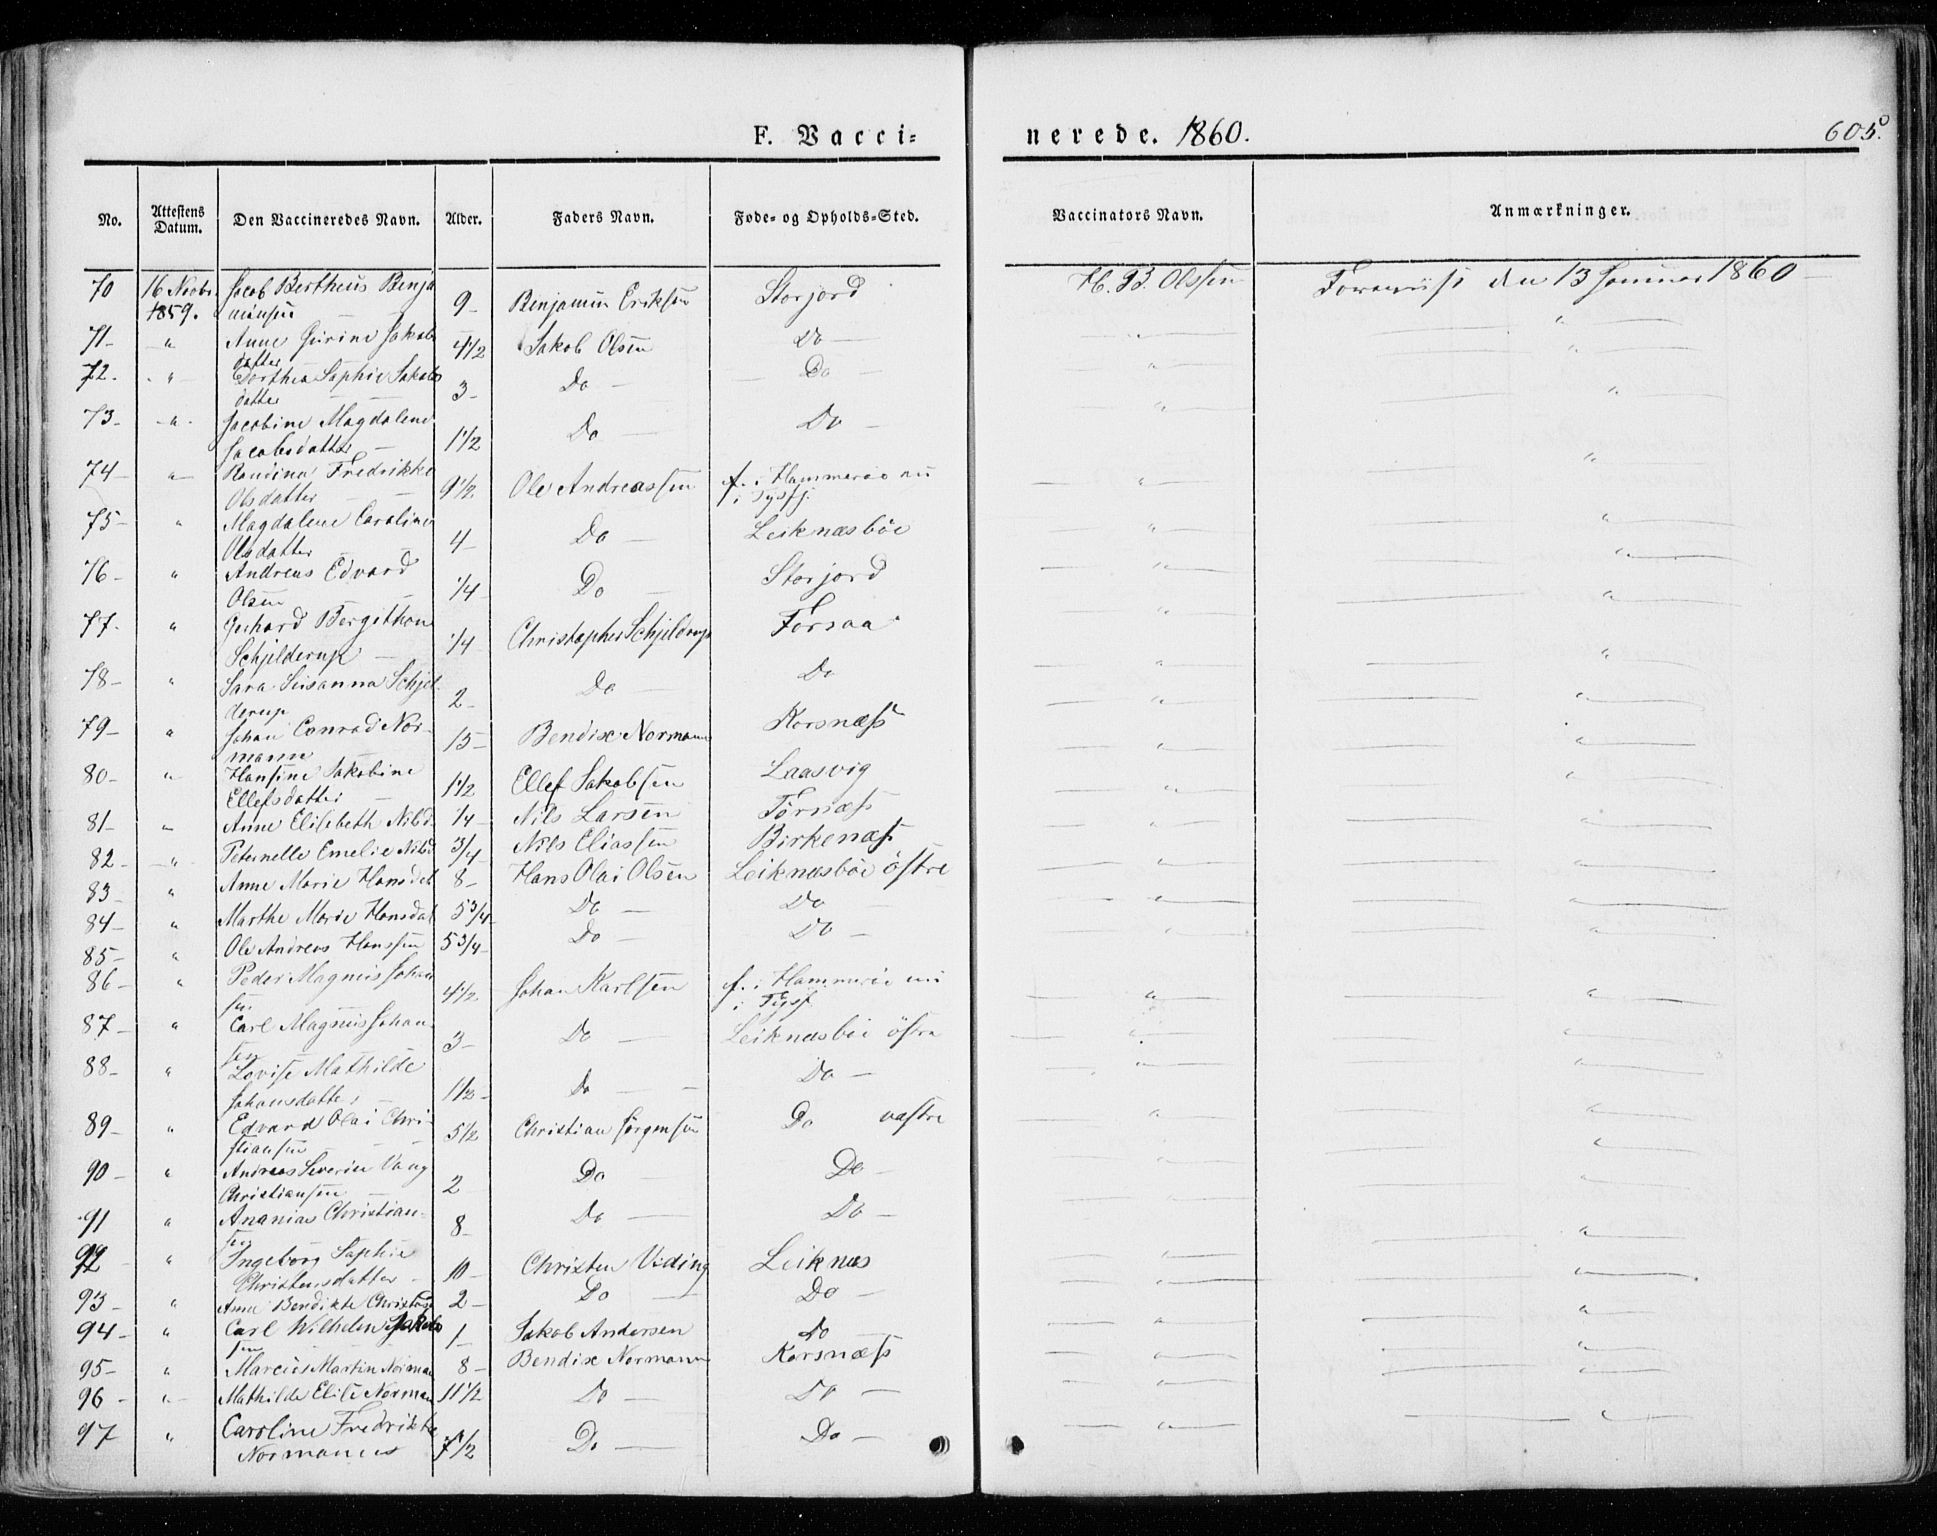 F. Vacci= nerede. 1860. 605.
No. Attestens Datum. Den Vaccineredes Navn. Alder. Faders Navn. Føde- og Opholds-Sted. Vaccinators Navn. Anmærkninger.
70 16 Novbr. Jacob Bertheus Benja
1859. minsen 9 Benjamin Eriksen Storjord H. B. Olsen Foreviist den 13 Januar 1860
71 " Anne Jakobs
datter 4 1/2 Jakob Olsen Do " "
72. " Dorthea Sophie Jakobs
datter 3 Do Do " "
73 " Jacobine Magdalene
Jacobsdatter 1 1/2 Do Do " "
74 " Fredrikke
Olsdatter 9 1/2 Ole Andreassen f. i Hammerøe nu
i Tysfj. " "
75 " Magdalene Caroline
Olsdatter 4 Do Leiknæsbøe " "
76 " Andreas Edvard
Olsen 1/4 Do Storjord " "
77. " Gerhard Bergithon
Schjelderup 1/4 Christopher Schjelderup Forsaa " "
78 " Sara Susanna Schjel
derup 2 Do Do " "
79 " Johan Conrad Nor-
mann 15 Bendix Normann Korsnæss " "
80 " Hansine Jakobine
Ellefsdatter 1 1/2 Ellef Jakobsen Laasvig " "
81 " Anne Elisebeth Nilsd. 1/4 Nils Larsen Tørnæss " "
82 " Peternelle Emelie Nilsd 3/4 Nils Eliassen Birkenæss " "
83 " Anne Marie Hansdat 8 Hans Olai Olsen Leiknæsbøe östre " "
84 " Marthe Marie Hansdat 5 3/4 Do Do " "
85 " Ole Andreas Hanssen 5 3/4 Do Do " "
86 " Peder Magnus Johan
sen 4 1/2 Johan Karlsen f. i Hammerøe nu
i Tysf. " "
87 " Carl Magnus Johan-
sen 3 Do Leiknæsbøe östre " "
88 " Lovise Mathilde
Johansdatter 1 1/2 Do Do " "
89 " Edvard Olai Chri-
stiansen 5 1/2 Christian Jørgensen Do vestre " "
90 " Andreas Severin Vang
Christiansen 2 Do Do " "
91 " Ananias Christian-
sen 8 Do Do " "
92 " Ingeborg Sophie
Christensdatter 10 Christen Leiknæs " "
93 " Anne Bendikte 2 Do Do " "
94 " Carl Wilhelm Jakob
sen 1 Jakob Andersen Do " "
95 " Marcus Martin Norman 8 Bendix Normann Korsnæss " "
96 " Mathilde Elise Norman 11 1/2 Do Do " "
97 " Caroline Fredrikke
Normann 7 1/2 Do Do " "